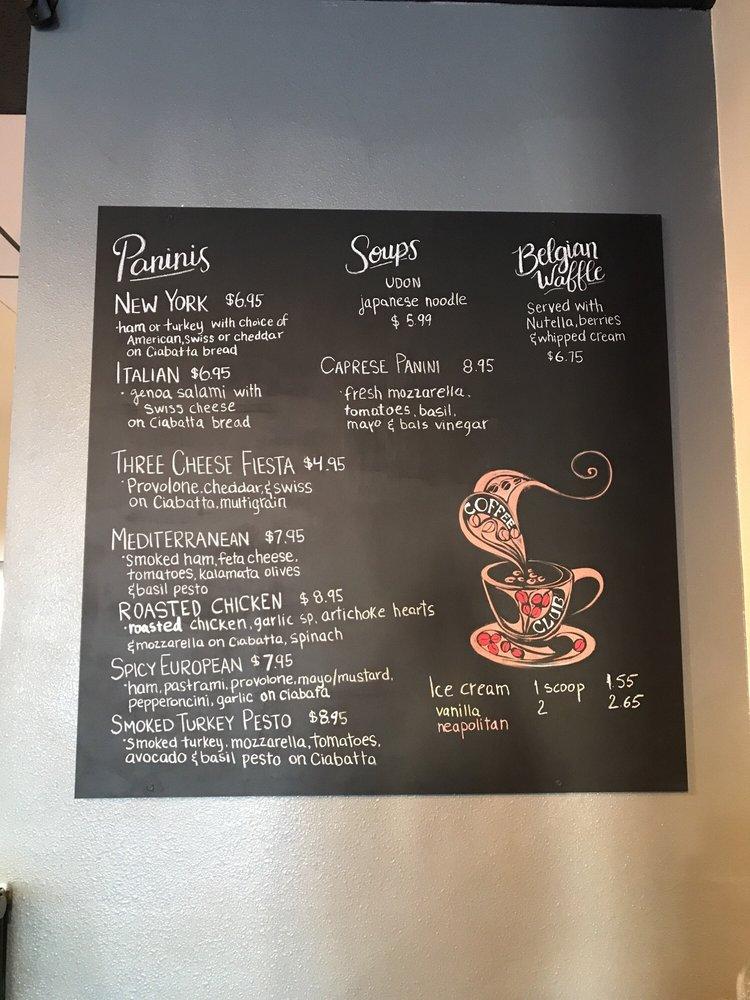 Paninis
NEW YORK $6.95
·ham or turkey with choice of
American, swiss or cheddar
on Ciabatta bread
ITALIAN $6.95
· genoa salami with
swiss cheese
on Ciabatta bread
THREE CHEESE FIESTA $4.95
·Provolone, cheddar, & swiss
on Ciabatta, multigrain
MEDITERRANEAN $7.95
·Smoked ham, feta cheese,
tomatoes, kalamata olives
& basil pesto
ROASTED CHICKEN $8.95
·roasted chicken, garlic sp. artichoke hearts
& mozzarella on Ciabatta, spinach
SPICY EUROPEAN $7.95
·ham, pastrami, provolone, mayo/mustard,
pepperoncini, garlic on ciabata
SMOKED TURKEY PESTO $8.95
·Smoked turkey, mozzarella, tomatoes,
avocado & basil pesto on Ciabatta
Soups
UDON
japanese noodle
$ 5.99
CAPRESE PANINI 8.95
·fresh mozzarella,
tomatoes, basil,
mayo & bals vinegar
Belgian
Waffle
Served with
Nutella, berries
& whipped cream
$6.75
COFFEE
CLUB
Ice cream 1 scoop 1.55
vanilla 2 2.65
neapolitan